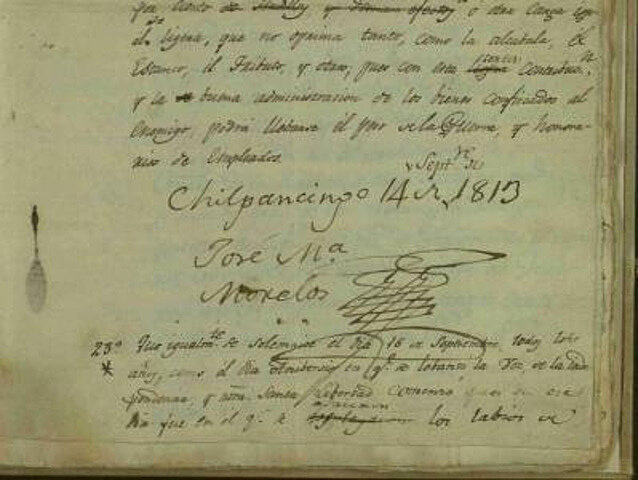 por ciento de ... y demas efectos ó otra carga igual
de ligera, que no oprima tanto, como la alcabala, el
Estanco, el Tributo, y otros, pues con esta corta contribucn.
y la buena administracion de los bienes confiscados al
Enemigo, podrá llebarse el peso de la Guerra, y honora-
rios de Empleados.
Septre. de
Chilpancingo 14 de 1813
José Ma.
Morelos
23º Que igualmte. se solemnice el dia 16 de Septiembre todos los
años, como el dia Anibersario en qe. se lebantó la Voz de la Inde-
pendencia, y ntra. Santa Libertad comenzó, pues en ese
Dia fue en el qe. se desplegaron los labios de